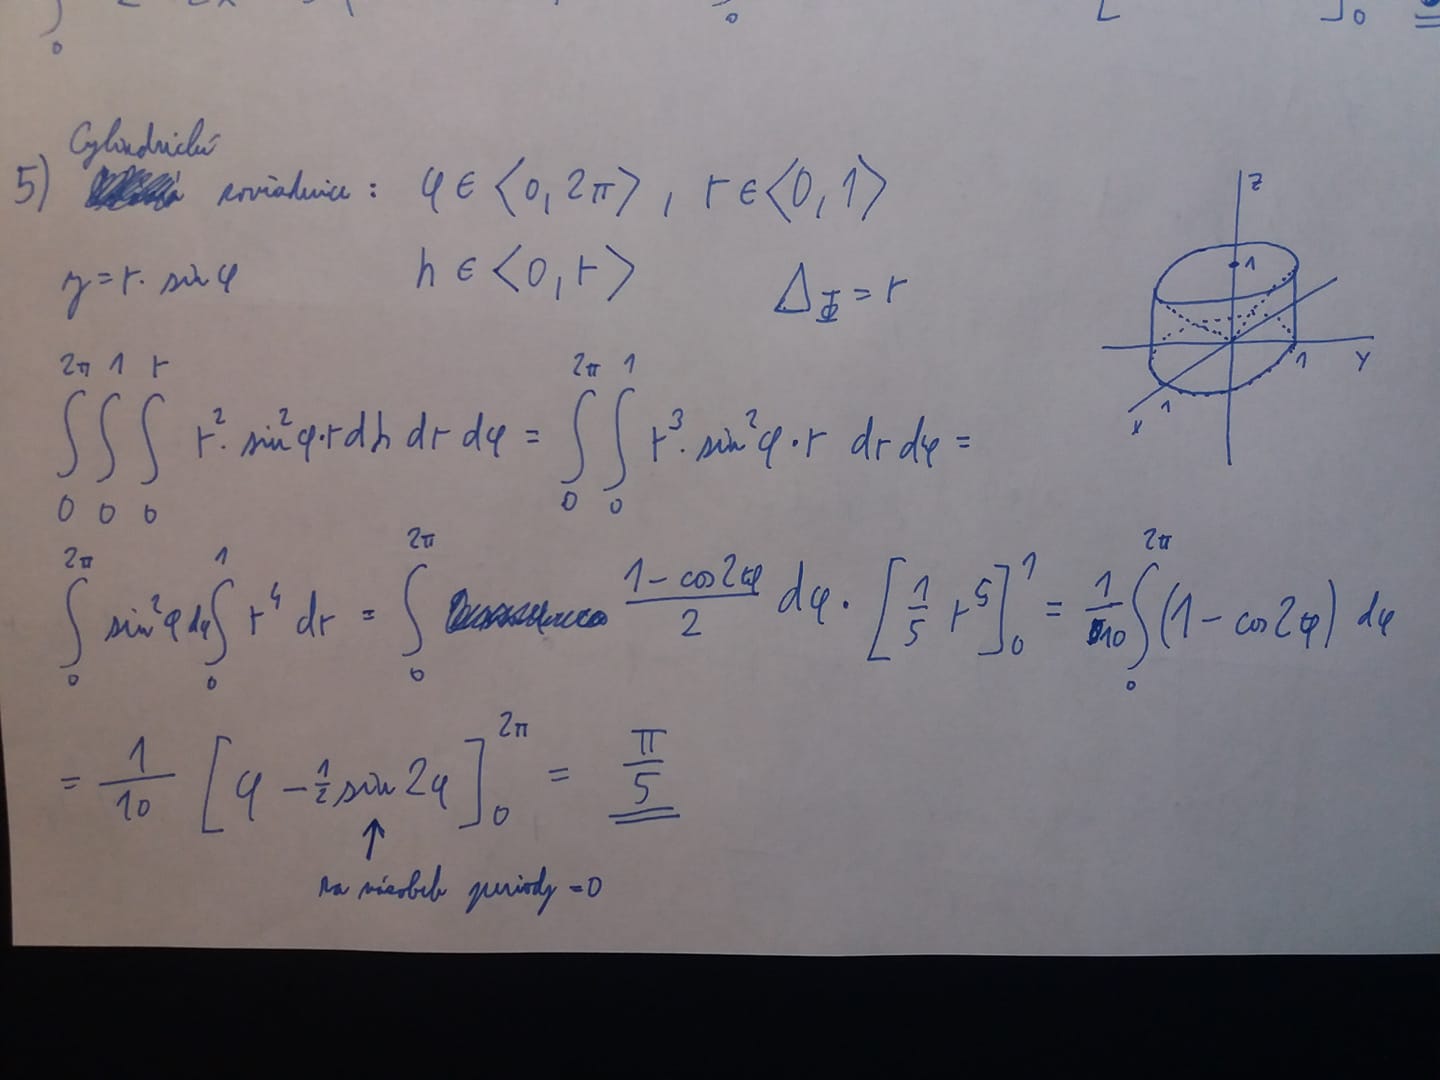 5) Cylindrické
φ ∈ ⟨0, 2π⟩, r ∈ ⟨0, 1⟩
y = r · sin φ h ∈ ⟨0, r⟩ Δ_Φ = r
∫_0^{2π} ∫_0^1 ∫_0^r r² · sin²φ · r dh dr dφ = ∫_0^{2π} ∫_0^1 r³ · sin²φ · r dr dφ =
∫_0^{2π} sin²φ dφ ∫_0^1 r⁴ dr = ∫_0^{2π} (1 - cos2φ)/2 dφ · [1/5 r⁵]_0^1 = 1/10 ∫_0^{2π} (1 - cos2φ) dφ
= 1/10 [φ - 1/2 sin 2φ]_0^{2π} = π/5
↑
na násobek periody = 0
z
1
1
y
1
x